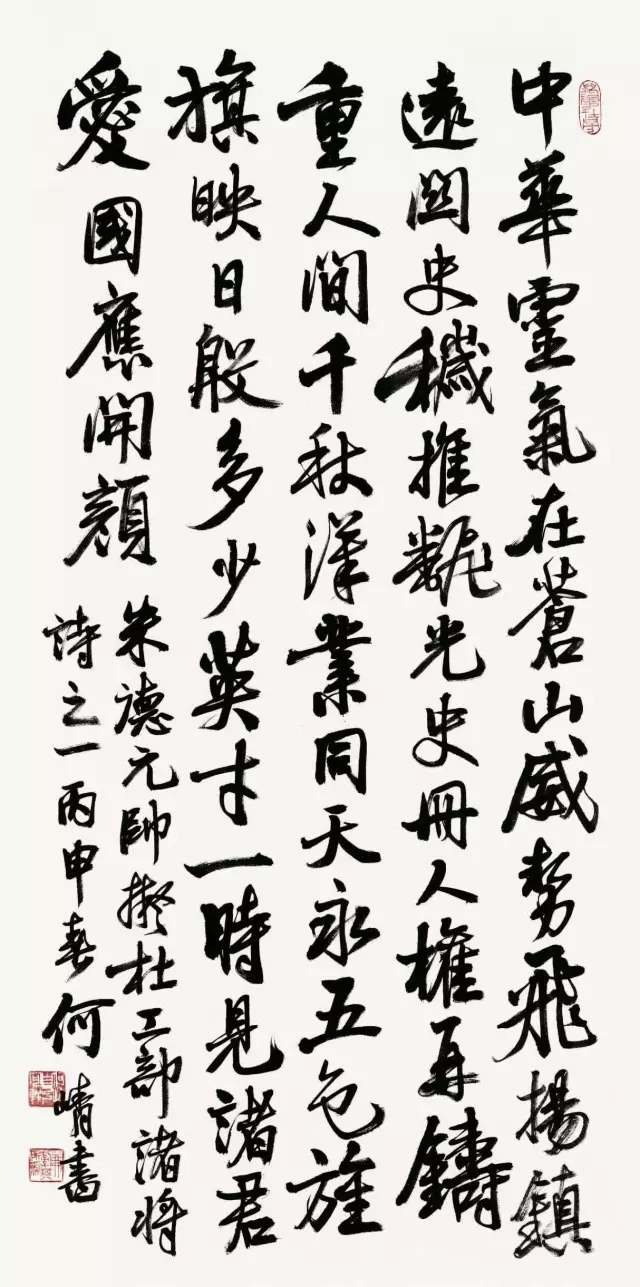 中華靈氣在蒼山威勢飛揚鎮
遠關史穢推翻光史冊人權再鑄
重人間千秋漢業同天永五色旌
旗映日殷多少英才一時見諸君
愛國應開顏
朱德元帥擬杜工部諸將
詩之一丙申春何書